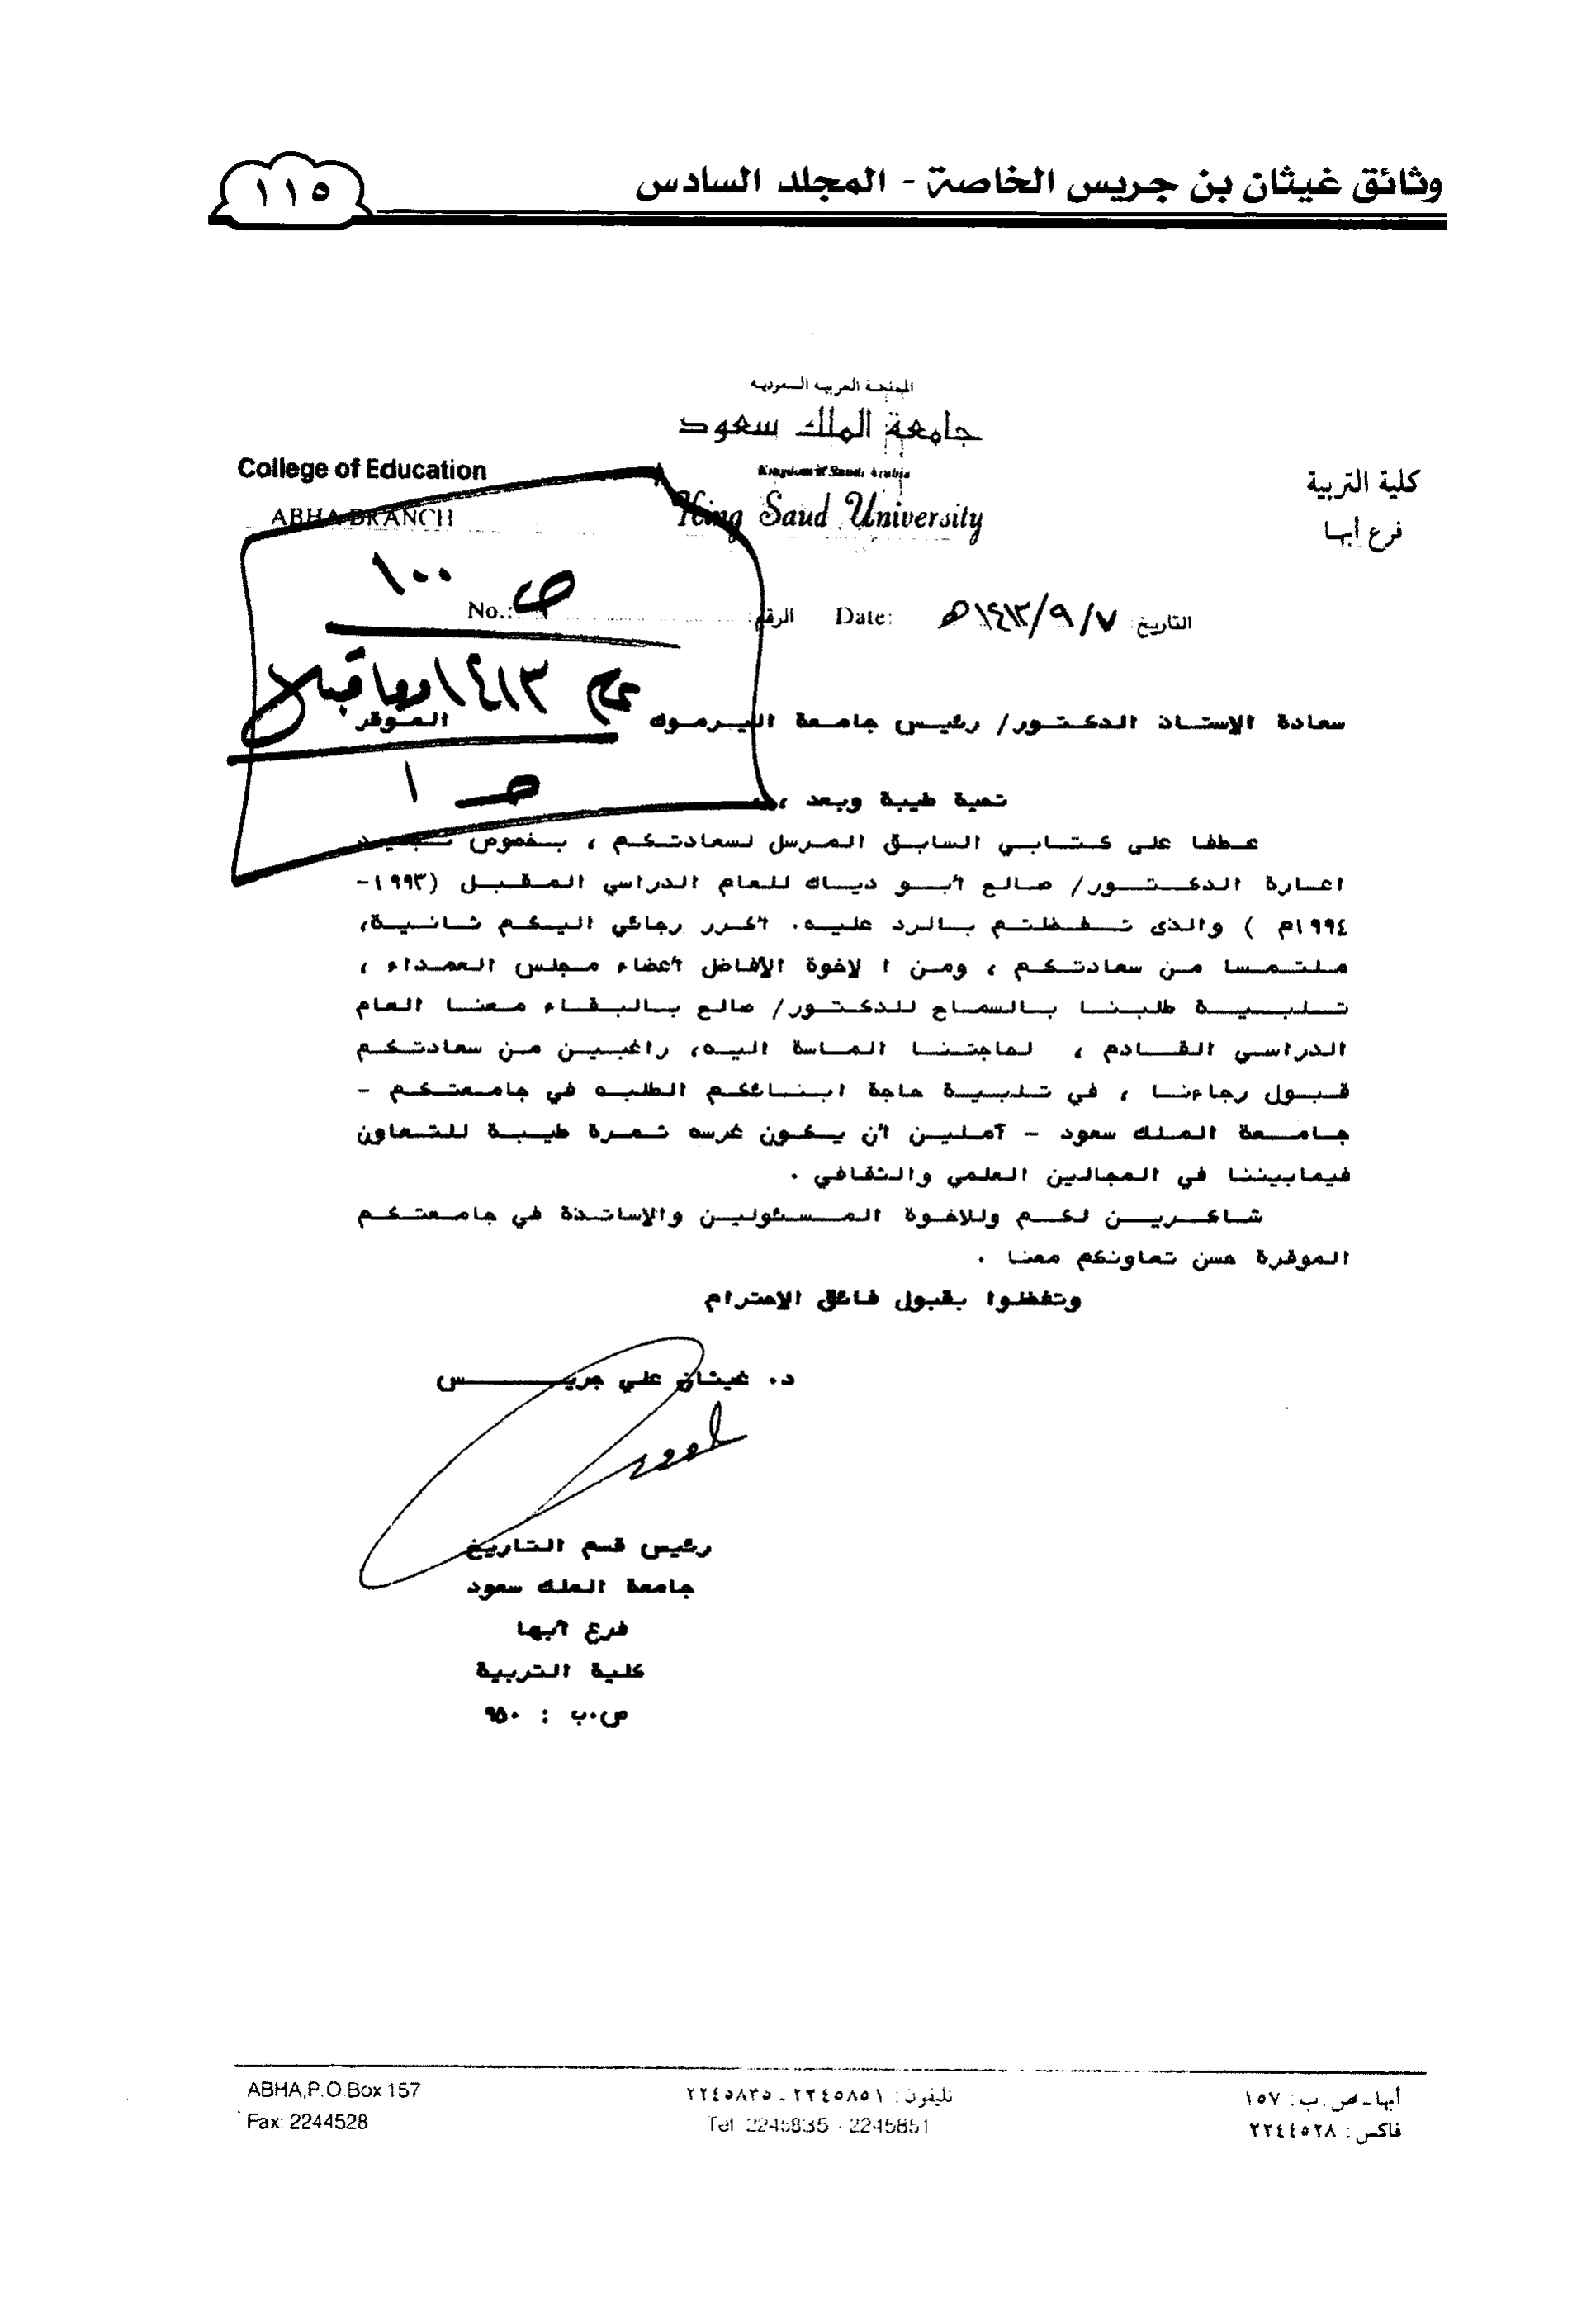 وثائق غيثان بن جريس الخاصة - المجلد السادس
١١٥
المملكة العربية السعودية
جامعة الملك سعود
Kingdom of Saudi Arabia
King Saud University
College of Education
ABHA BRANCH
كلية التربية
فرع أبها
التاريخ: ٧/٩/١٤١٣هـ Date: الرقم: No.:
ص ١٠٠
عام ١٤١٣ وما قبلا
ص ١
سعادة الإستاذ الدكتور/ رئيس جامعة اليرموك الموقر
تحية طيبة وبعد ،،
عطفا على كتابي السابق المرسل لسعادتكم ، بخصوص تجديد
اعارة الدكتور/ صالح أبو دياك للعام الدراسي المقبل (١٩٩٣-
١٩٩٤م ) والذى تفضلتم بالرد عليه. أكرر رجائي اليكم ثانية،
ملتمسا من سعادتكم ، ومن ا لاخوة الإفاضل أعضاء مجلس العمداء ،
تلبية طلبنا بالسماح للدكتور/ صالح بالبقاء معنا العام
الدراسي القادم ، لحاجتنا الماسة اليه، راغبين من سعادتكم
قبول رجاءنا ، في تلبية حاجة ابنائكم الطلبه في جامعتكم -
جامعة الملك سعود - آملين أن يكون غرسه ثمرة طيبة للتعاون
فيمابيننا في المجالين العلمي والثقافي .
شاكرين لكم وللاخوة المسئولين والإساتذة في جامعتكم
الموقرة حسن تعاونكم معنا .
وتفضلوا بقبول فائق الإحترام
د. غيثان علي جريس
رئيس قسم التاريخ
جامعة الملك سعود
فرع أبها
كلية التربية
ص.ب : ٩٥٠
أبها-ص.ب: ١٥٧
فاكس: ٢٢٤٤٥٢٨
تليفون: ٢٢٤٥٨٥١ - ٢٢٤٥٨٣٥
Tel 2245835 - 2245851
ABHA,P.O.Box 157
Fax: 2244528